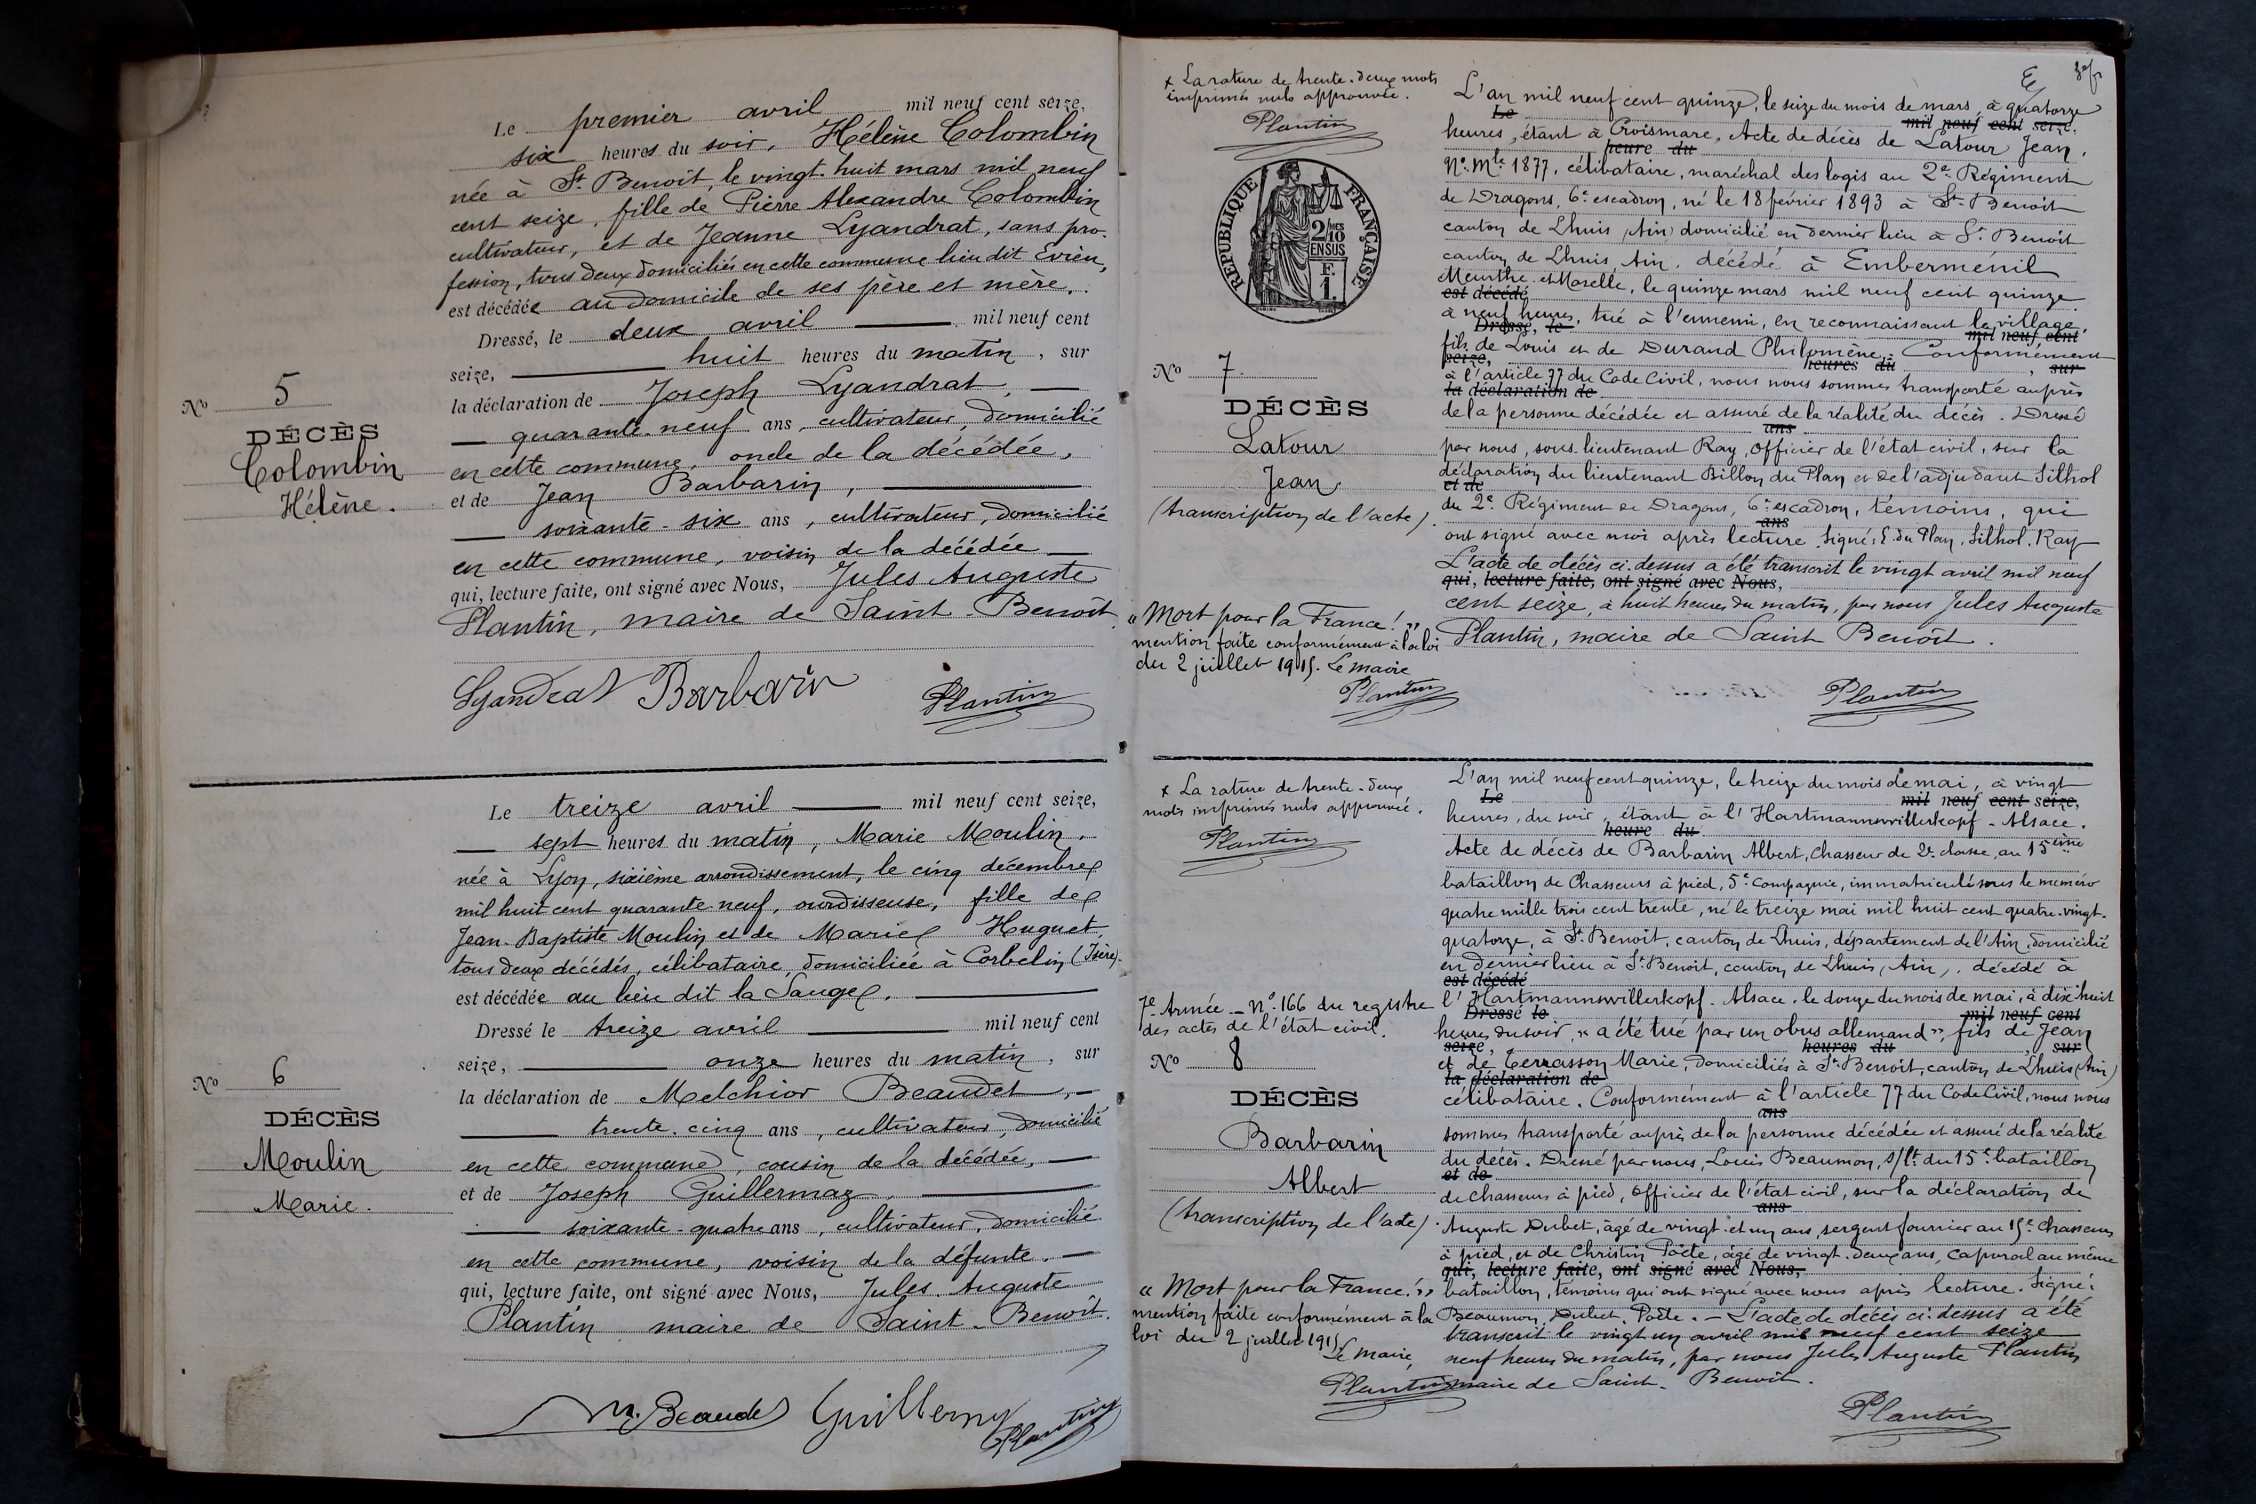 Le premier avril mil neuf cent seize,
six heures du soir, Hélène Colombin
née à St. Benoit, le vingt-huit mars mil neuf
cent seize, fille de Pierre Alexandre Colombin
cultivateur, et de Jeanne Lyandrat, sans pro-
fession, tous deux domiciliés en cette commune lieu dit Evieu,
est décédée au domicile de ses père et mère.
Dressé, le deux avril mil neuf cent
seize, huit heures du matin, sur
la déclaration de Joseph Lyandrat,
quarante-neuf ans, cultivateur, domicilié
en cette commune, oncle de la décédée,
et de Jean Barbarin,
soixante-six ans, cultivateur, domicilié
en cette commune, voisin de la décédée
qui, lecture faite, ont signé avec Nous, Jules Auguste
Plantin, maire de Saint Benoît.
Lyandrat Barbarin Plantin
No 5
DÉCÈS
Colombin
Hélène.
Le treize avril mil neuf cent seize,
sept heures du matin, Marie Moulin,
née à Lyon, sixième arrondissement, le cinq décembre
mil huit cent quarante neuf, ourdisseuse, fille de
Jean-Baptiste Moulin et de Marie Huguet,
tous deux décédés, célibataire, domiciliée à Corbelin (Isère).
est décédée au lieu dit la Sauge.
Dressé le treize avril mil neuf cent
seize, onze heures du matin, sur
la déclaration de Melchior Beaudet,
trente-cinq ans, cultivateur, domicilié
en cette commune, cousin de la décédée,
et de Joseph Guillermaz,
soixante-quatre ans, cultivateur, domicilié
en cette commune, voisin de la défunte.
qui, lecture faite, ont signé avec Nous, Jules Auguste
Plantin maire de Saint-Benoît.
M. Beaudet Guillermaz Plantin
No 6
DÉCÈS
Moulin
Marie.
x La rature de trente-deux mots
imprimés nuls approuvée.
Plantin
RÉPUBLIQUE FRANÇAISE
2/10 EN SUS
F.
1.
No 7.
DÉCÈS
Latour
Jean
(transcription de l'acte).
« Mort pour la France! »
mention faite conformément à la loi
du 2 juillet 1915. Le maire
Plantin
L'an mil neuf cent quinze, le seize du mois de mars, à quatorze
Le mil neuf cent seize,
heures, étant à Croismare, Acte de décès de Latour Jean,
heure du
No. Mle 1877, célibataire, maréchal des logis au 2e Régiment
de Dragons, 6e escadron, né le 18 février 1893 à St. Benoit
canton de Lhuis (Ain) domicilié en dernier lieu à St. Benoît
canton de Lhuis, Ain, décédé à Emberménil
Meurthe-et-Moselle, le quinze mars mil neuf cent quinze
est décédé
à neuf heures, tué à l'ennemi, en reconnaissant le village,
Dressé, le mil neuf cent
fils de Louis et de Durand Philomène. Conformément
seize, heures du, sur
à l'article 77 du Code Civil, nous nous sommes transporté auprès
la déclaration de
de la personne décédée et assuré de la réalité du décès. Dressé
ans
par nous, sous-lieutenant Ray, Officier de l'état civil, sur la
déclaration du lieutenant Billon du Plan et de l'adjudant Silhol
et de
du 2e Régiment de Dragons, 6e escadron, témoins, qui
ans
ont signé avec moi après lecture. Signé: E. du Plan, Silhol, Ray
L'acte de décès ci-dessus a été transcrit le vingt avril mil neuf
qui, lecture faite, ont signé avec Nous,
cent seize, à huit heures du matin, par nous Jules Auguste
Plantin, maire de Saint Benoît.
Plantin
x La rature de trente-deux
mots imprimés nuls approuvée.
Plantin
7e Armée - No. 166 du registre
des actes de l'état civil.
No 8
DÉCÈS
Barbarin
Albert
(transcription de l'acte).
« Mort pour la France! »
mention faite conformément à la
loi du 2 juillet 1915.
Le maire,
Plantin
L'an mil neuf cent quinze, le treize du mois de mai, à vingt
Le mil neuf cent seize,
heures, du soir, étant à l'Hartmannswillerkopf - Alsace.
heure du
Acte de décès de Barbarin Albert, Chasseur de 2e classe, au 15ème
bataillon de Chasseurs à pied, 5e Compagnie, immatriculé sous le numéro
quatre mille trois cent trente, né le treize mai mil huit cent quatre-vingt-
quatorze, à St. Benoit, canton de Lhuis, département de l'Ain, domicilié
en dernier lieu à St. Benoît, canton de Lhuis (Ain), décédé à
est décédé
l'Hartmannswillerkopf - Alsace, le douze du mois de mai, à dix huit
Dressé le mil neuf cent
heures du soir, « a été tué par un obus allemand », fils de Jean
seize, heures du, sur
et de Terrasson Marie, domiciliés à St. Benoît, canton de Lhuis (Ain)
la déclaration de
célibataire. Conformément à l'article 77 du Code Civil, nous nous
ans
sommes transporté auprès de la personne décédée et assuré de la réalité
du décès. Dressé par nous, Louis Beaumon, s/Lt. du 15e bataillon
et de
de chasseurs à pied, Officier de l'état civil, sur la déclaration de
ans
Auguste Dubet, âgé de vingt et un ans, sergent fourrier au 15e Chasseurs
à pied, et de Christin Poète, âgé de vingt-deux ans, caporal au même
qui, lecture faite, ont signé avec Nous,
bataillon, témoins qui ont signé avec nous après lecture. Signé:
Beaumon, Dubet, Poète. - L'acte de décès ci-dessus a été
transcrit le vingt un avril mil neuf cent seize
neuf heures du matin, par nous Jules Auguste Plantin
maire de Saint-Benoit.
Plantin